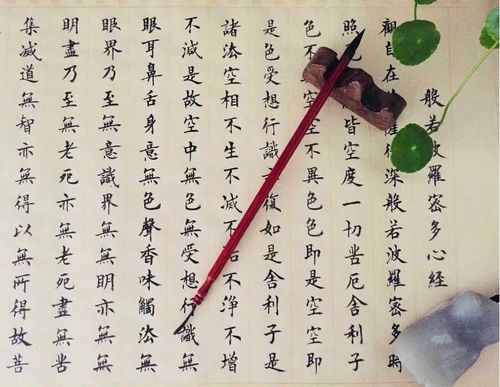 般若波羅密多心經
觀自在薩行深般若波羅密多時
照見皆空度一切苦厄舍利子
色不空不異色色即是空空即
是色受想行識亦復如是舍利子是
諸法空相不生不滅不垢不淨不增
不減是故空中無色無受想行識無
眼耳鼻舌身意無色聲香味觸法無
眼界乃至無意識界無無明亦無無
明盡乃至無老死亦無老死盡無苦
集滅道無智亦無得以無所得故菩